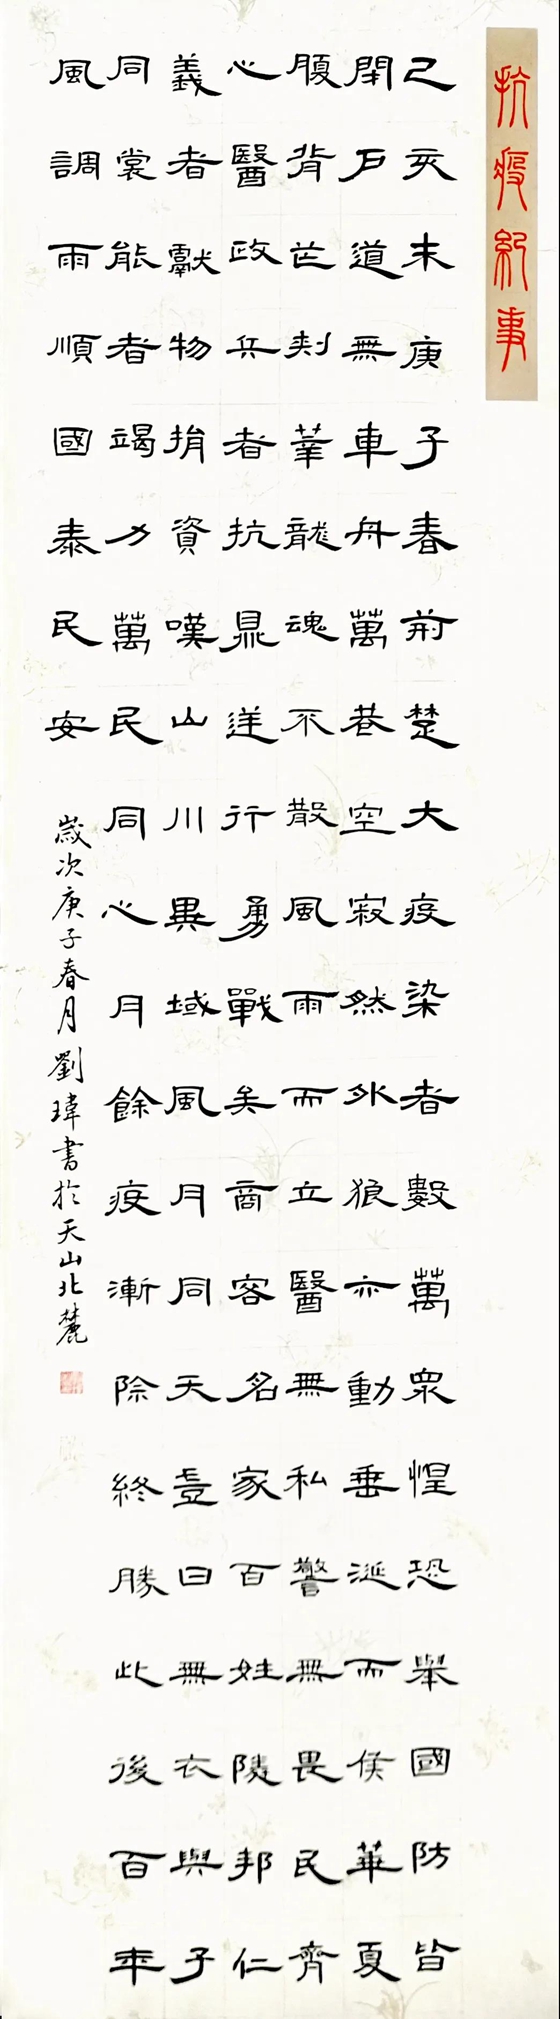 抗疫紀事
己亥末庚子春荊楚大疫染者數萬眾惶恐舉國防皆
閉戶道無車舟萬巷空寂然外狼亦動垂涎而侯華夏
腹背芒刺華龍魂不散風雨而立醫無私警無畏民齊
心醫政兵者抗鼎逆行勇戰矣商客名家百姓陵邦仁
義者獻物捐資嘆山川異域風月同天壹曰無衣與子
同裳能者竭力萬民同心月餘疫漸除終勝此後百年
風調雨順國泰民安
歲次庚子春月劉瑋書於天山北麓